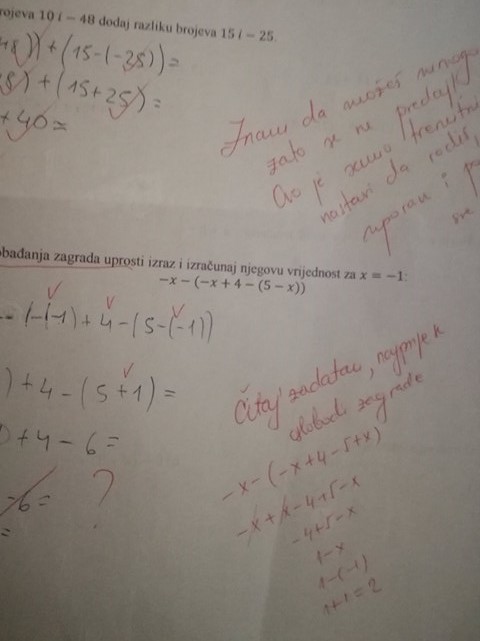 brojeva 10 i − 48 dodaj razliku brojeva 15 i − 25.
48)) + (15-(-35)) =
) + (15+25) =
+ 40 =
Znam da možeš mnogo
zato se ne predaj
Ovo je samo trenutni
nastavi da radiš,
uporan i
sve
obađanja zagrada uprosti izraz i izračunaj njegovu vrijednost za x = −1:
−x − (−x + 4 − (5 − x))
- (-(-1) + 4 - (5-(-1))
) + 4 - (5+1) =
) + 4 - 6 =
-6 = ?
=
Čitaj zadatak, najprije
oslobodi zagrade
-x-(-x+4-5+x)
-x+x-4+5-x
-4+5-x
1-x
1-(-1)
1+1=2